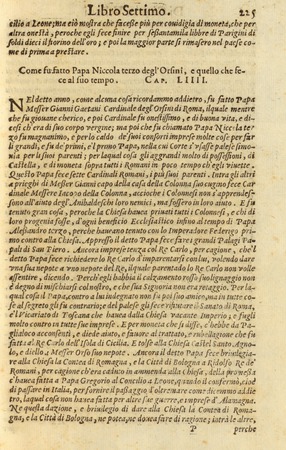 Libro Settimo. 225
cilio a Leone; ma ciò mostra che facesse più per covidigia di moneta, che per
altra onestà, peroche egli fece finire per sessantamila libbre di Parigini di
soldi dieci il fiorino dell'oro; e poi la maggior parte si rimasero nel paese co-
me di prima a prestare.
Come fu fatto Papa Niccola terzo degl'Orsini, e quello che fe-
ce al suo tempo. CAP. LIIII.
NEl detto anno, come alcuna cosa ricordammo addietro, fu fatto Papa
Messer Gianni Gaetani Cardinale degl'Orsini di Roma, ilquale mentre
che fu giovane cherico, e poi Cardinale fu onestissimo, e di buona vita, e di-
cesi ch'era di suo corpo vergine; ma poi che fu chiamato Papa Niccola ter-
zo fu magnanimo, e per lo caldo de' suoi consorti imprese molte cose per far
li grandi, e fu de' primi, e'l primo Papa, nella cui Corte s'usasse palese simo-
nia per li suoi parenti; per laqual cosa gli aggrandì molto di possessioni, di
Castella, e di moneta sopra tutti i Romani in poco tempo ch'egli vivette.
Questo Papa fece sette Cardinali Romani, i più suoi parenti. Intra gli altri
a prieghi di Messer Gianni capo della casa della Colonna suo cugino fece Car
dinale Messer Jacopo della Colonna, accioche i Colonnesi non s'apprendes-
sono all'aiuto degl'Anibaldeschi loro nemici, ma fossero in loro aiuto. E fu
tenuto gran cosa, peroche la Chiesa havea privati tutti i Colonnesi, e chi di
loro progenie fosse, d'ogni beneficio Ecclesiastico infino al tempo di Papa
Alessandro terzo, perche havean tenuto con lo Imperadore Federigo pri-
mo contro alla Chiesa. Appresso il detto Papa fece fare i grandi Palagi Pa-
pali di San Piero. Ancora imprese tenza col Re Carlo, per cagione, che'l det
to Papa fece richiedere lo Re Carlo d'imparentarsi con lui, volendo dare
una sua nepote a uno nepote del Re, ilquale parentado lo Re Carlo non volle
assentire, dicendo. Perch'egli habbia il calzamento rosso suo lignaggio non
è degno di mischiarsi col nostro, e che sua Signoria non era retaggio. Per la-
qual cosa il Papa contro a lui indegnato non fu poi suo amico, ma in tutte co-
se al segreto gli fu contrario, e del palese gli fece rifiutare il Sanato di Roma,
e'l Vicariato di Toscana che havea dalla Chiesa vacante Imperio, e fugli
molto contro in tutte sue imprese. E per moneta che si disse, c'hebbe da Pa-
glialoco acconsentì, e diede aiuto, e favore al trattato, e rubellagione che fu
fatta al Re Carlo dell'Isola di Cicilia. E tolse alla Chiesa Castel Santo Agno-
lo, e diello a Messer Orso suo nepote. Ancora il detto Papa fece brivilegia-
re alla Chiesa la Contea di Romagna, e la Città di Bologna a Ridolfo Re de'
Romani, per cagione ch'era caduto in ammenda alla Chiesa, della promessa
c'havea fatta a Papa Gregorio al Concilio a Leone, quando il confermò, cioè
di passare in Italia, per fornire il passaggio d'oltremare come dicemmo addie
tro, laqual cosa non havea fatta per altre sue guerre, e imprese d'Alamagna.
Ne questa dazione, e brivilegio di dare alla Chiesa la Contea di Roma-
gna, e la Città di Bologna, ne potea, ne dovea fare di ragione; intra le altre,
P perche